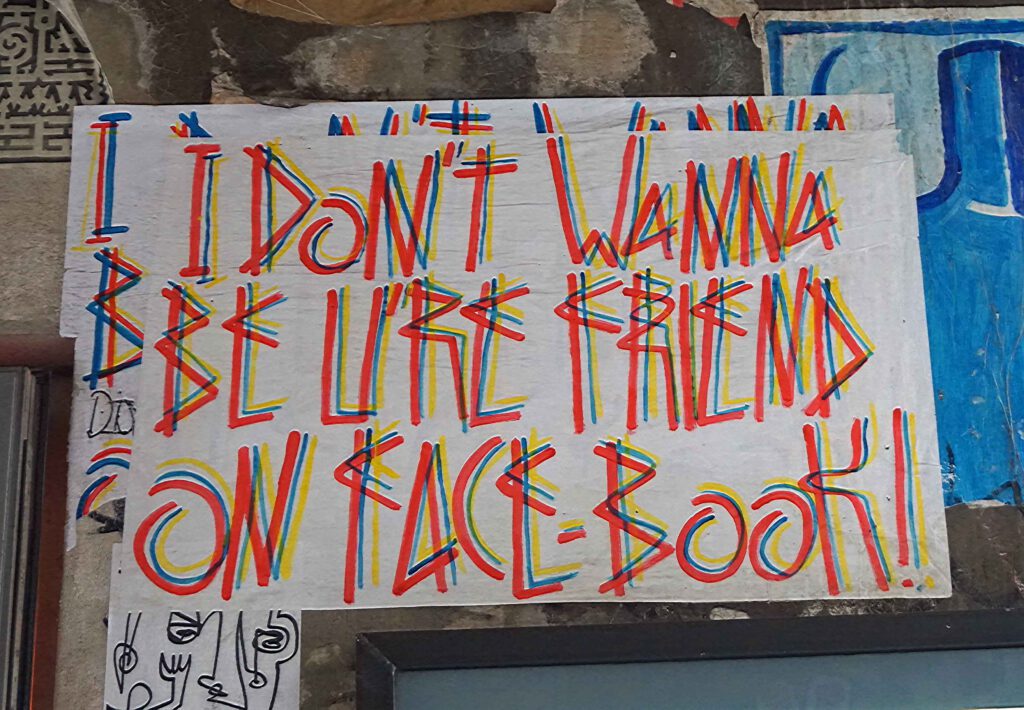 I DON'T WANNA
BE U'RE FRIEND
ON FACE-BOOK!